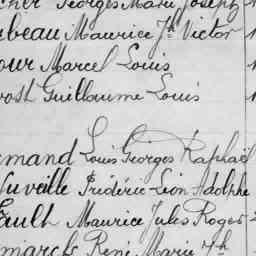 cher Georges Marie Joseph
beau Maurice Jh Victor
our Marcel Louis
vost Guillaume Louis
mand Louis Georges Raphaël
uveille Frédéric Léon Adolphe
Fault Maurice Jules Roger
René Marie Jh